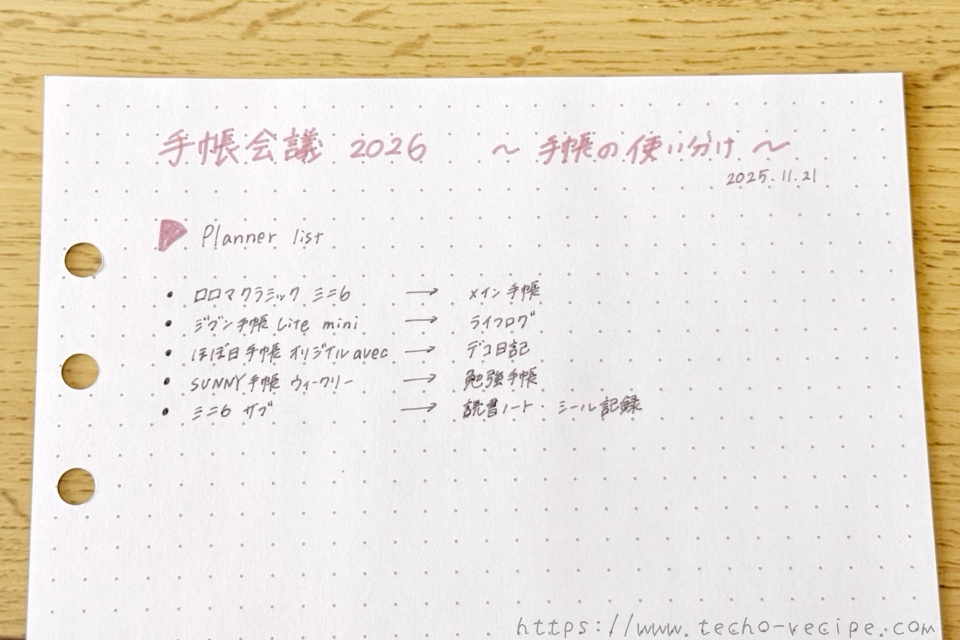 手帳会議 2026 ～ 手帳の使い分け ～
2025.11.21
Planner list
• ロロマクラシック ミニ6 → メイン手帳
• ジブン手帳 Lite mini → ライフログ
• ほぼ日手帳 オリジナル avec → デコ日記
• SUNNY手帳 ウィークリー → 勉強手帳
• ミニ6 サブ → 読書ノート・シール記録
https://www.techo-recipe.com